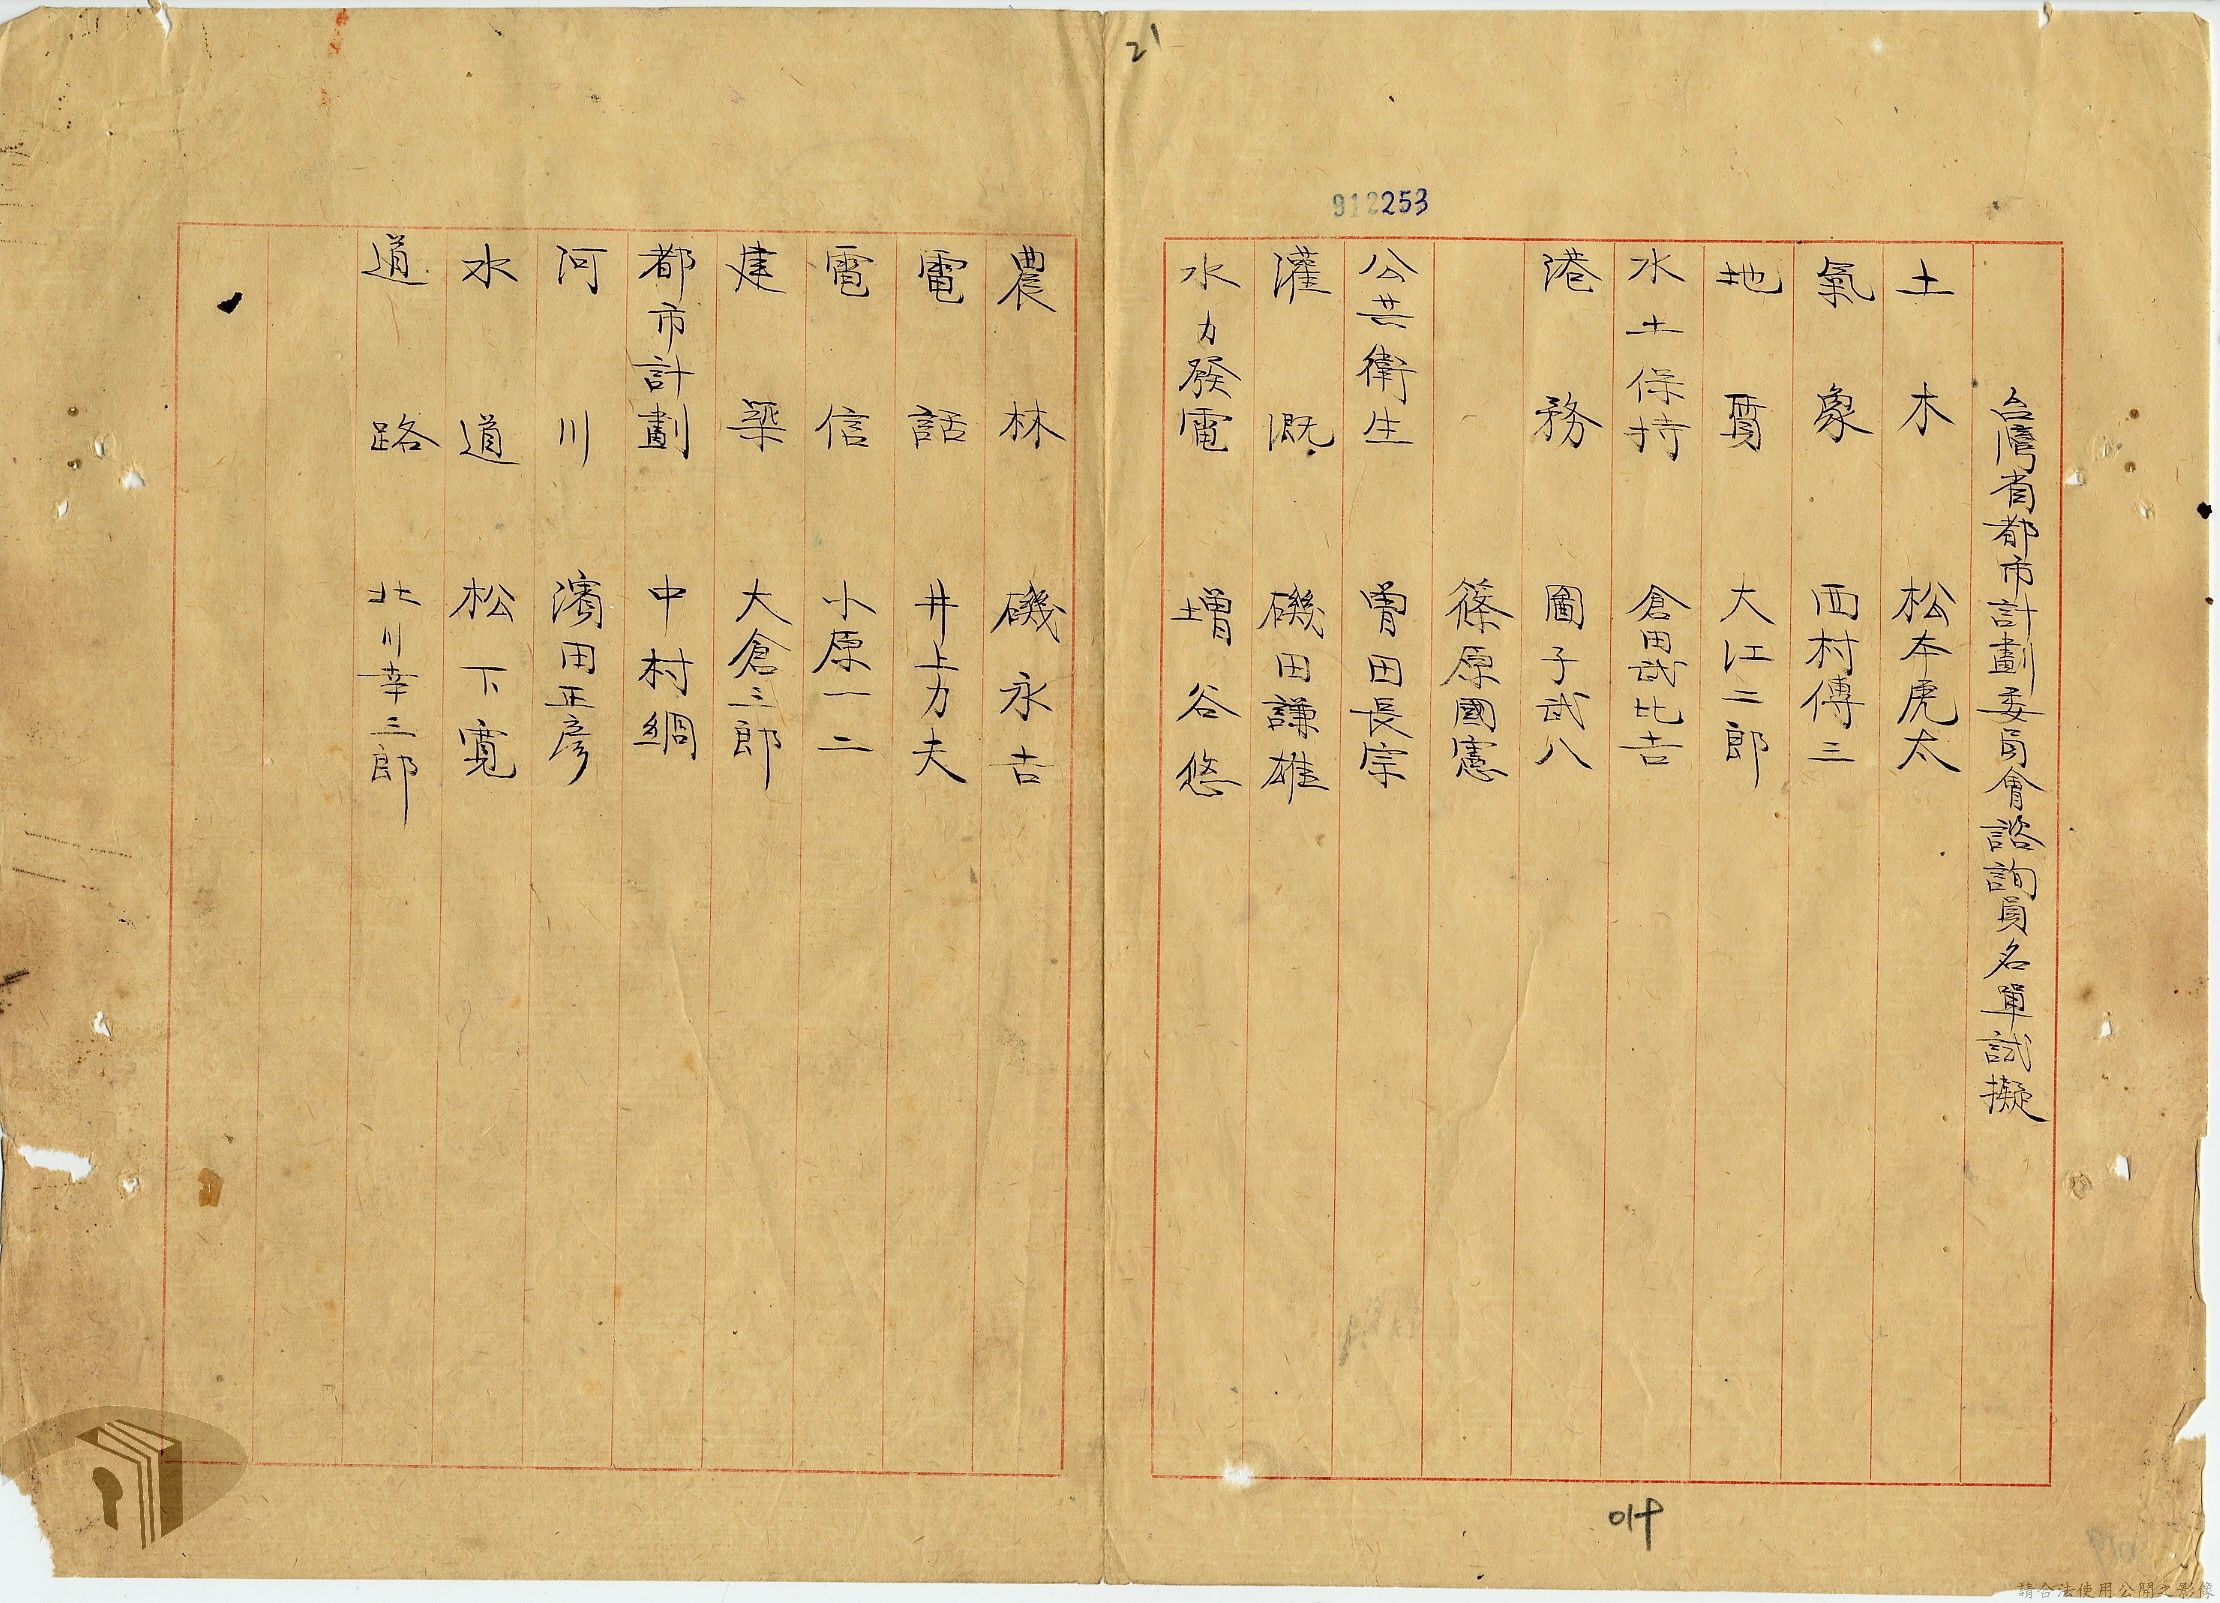 21
912253
台灣省都市計劃委員會諮詢員名單試擬
土木 松本虎太
氣象 西村傳三
地質 大江二郎
水土保持 倉田武比古
港務 圖子武八
篠原國憲
公共衛生 曾田長宗
灌溉 磯田謙雄
水力發電 增谷悠
農林 磯永吉
電話 井上力夫
電信 小原一二
建築 大倉三郎
都市計劃 中村綱
河川 濱田正彦
水道 松下寛
道路 北川幸三郎
019
請合法使用公開之影像